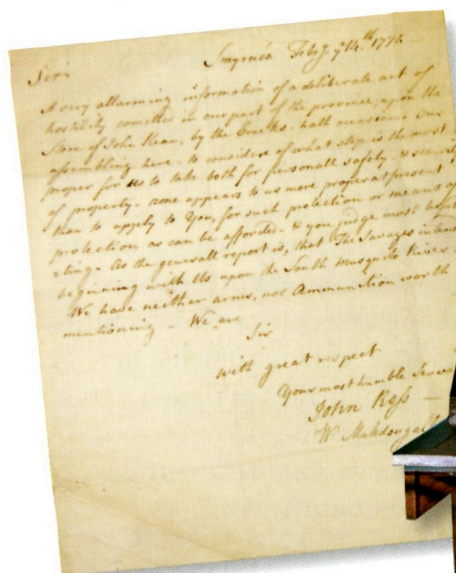 Sir: Smyrnia Feby ye 14.th 1774
A very allarming information of a deliberate act of
hostility comitted in one part of the province, upon the
Store of John Kean, by the Creeks. hath occasion'd our
assembling here. to consider of what step is the most
proper for us to take both for personall safety, & security
of property. none appears to us more proper at present
than to apply to You, for such protection or means of
protection as can be afforded. & you judge most
cting. As the generall report is, that The Savages intend
beginning with Us upon the South Musqueto River
We have neither arms, nor Ammunition worth
mentioning — We are
Sir
with great respect
Your most humble
John Ross
W. Makdougall